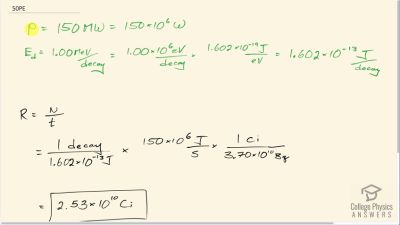 50PE
P = 150 MW = 150×10⁶ W
E_d = 1.00 MeV/decay = 1.00×10⁶ eV/decay × 1.602×10⁻¹⁹ J/eV = 1.602×10⁻¹³ J/decay
R = N/t
= 1 decay/1.602×10⁻¹³ J × 150×10⁶ J/s × 1 Ci/3.70×10¹⁰ Bq
= 2.53×10¹⁰ Ci
College Physics
ANSWERS